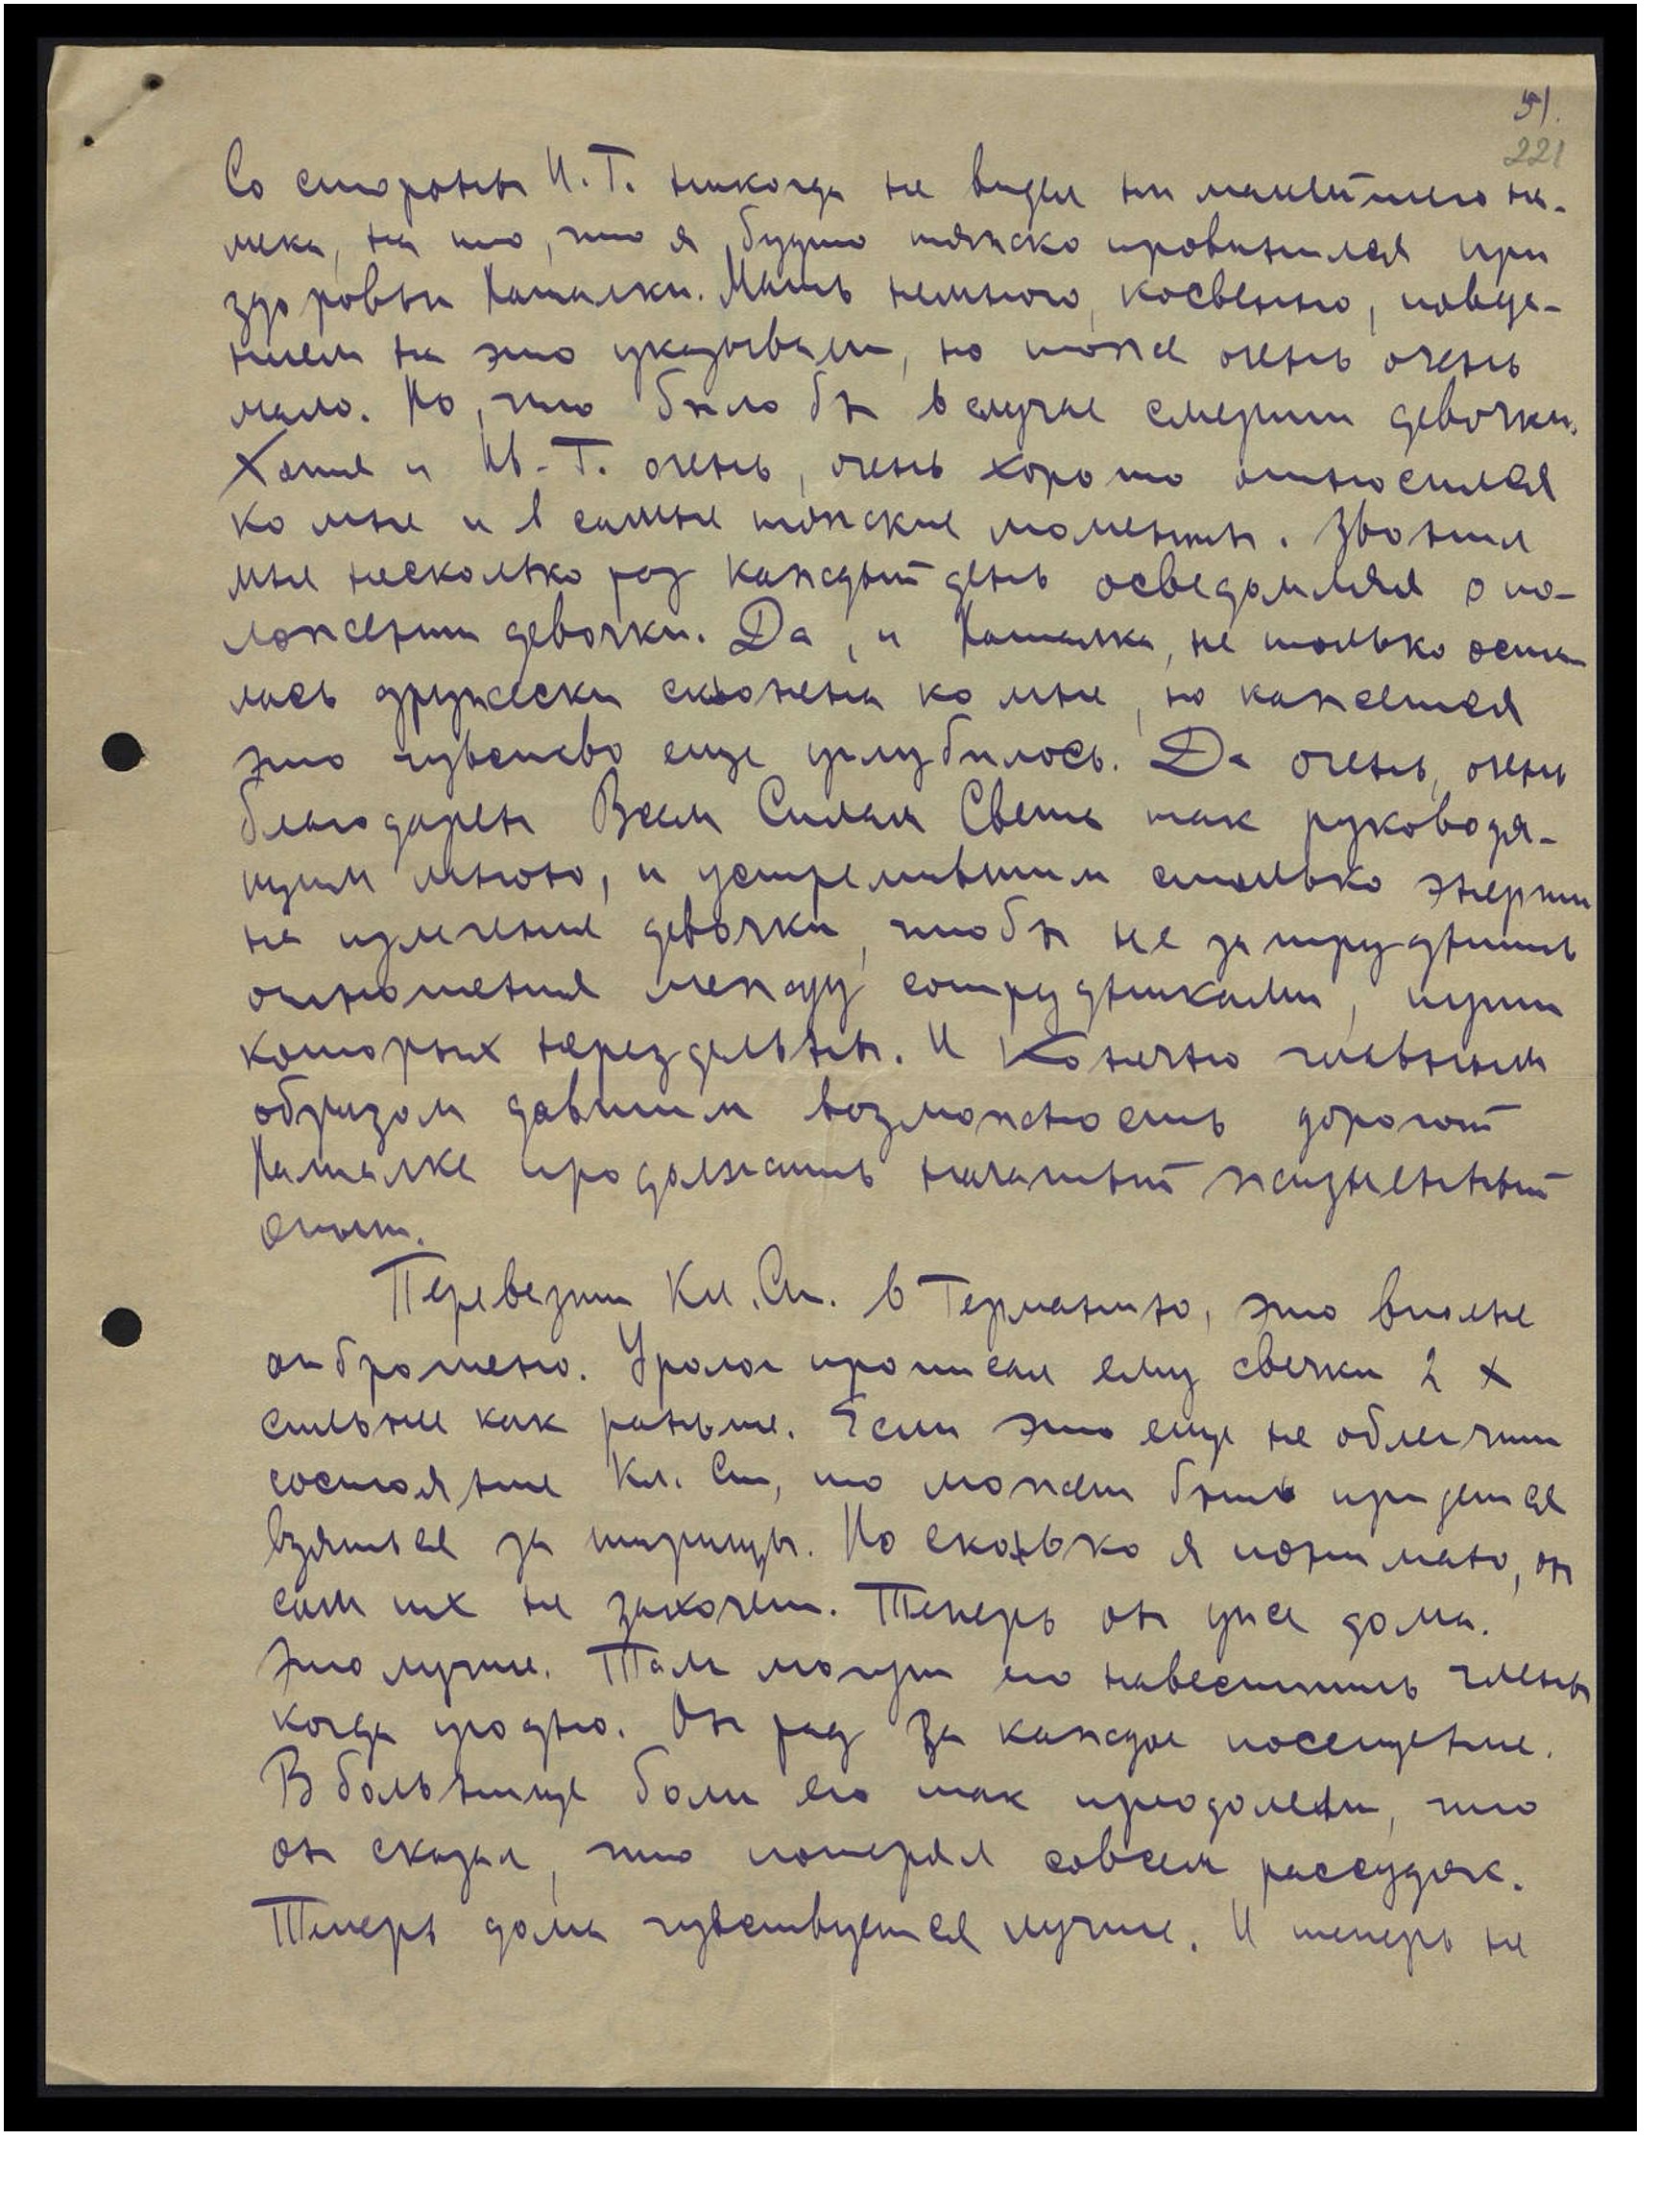 51.
221
Со стороны И.Т. никогда не видел ни малейшего на-
мека, на то, что я будто тяжско провинился при
здоровьи Наталки. Мать немного, косвенно, поведе-
нием на это указывали, но тоже очень очень
мало. Но, что было бы в случае смерти девочки.
Хотя и Ив.Т. очень, очень хорошо относился
ко мне и в самые тяжские моменты. Звонил
мне несколько раз каждый день осведомляя о по-
ложении девочки. Да, и Наталка, не только оста-
лась дружески склонена ко мне, но кажется
это чувство еще углубилось. Да очень, очень
благодарен Всем Силам Света так руководя-
щим мною, и устремившим столько энергии
на излечение девочки, чтобы не затруднить
отношения между сотрудниками, пути
которых нераздельны. И Конечно главным
образом давшим возможность дорогой
Наталке продолжать начатый жизненный
опыт.
Перевезти Кл.Ст. в Германию, это вполне
отброшено. Уролог прописал ему свечки 2 х
сильнее как раньше. Если это еще не облегчит
состояние Кл. Ст, то может быть придется
взяться за шприцы. Но сколько я понимаю, он
сам их не захочет. Теперь он уже дома.
Это лучше. Там могут его навестить члены
когда угодно. Он рад за каждое посещение.
В больнице боли его так преодолели, что
он сказал, что потерял совсем рассудок.
Теперь дома чувствуется лучше. И теперь не